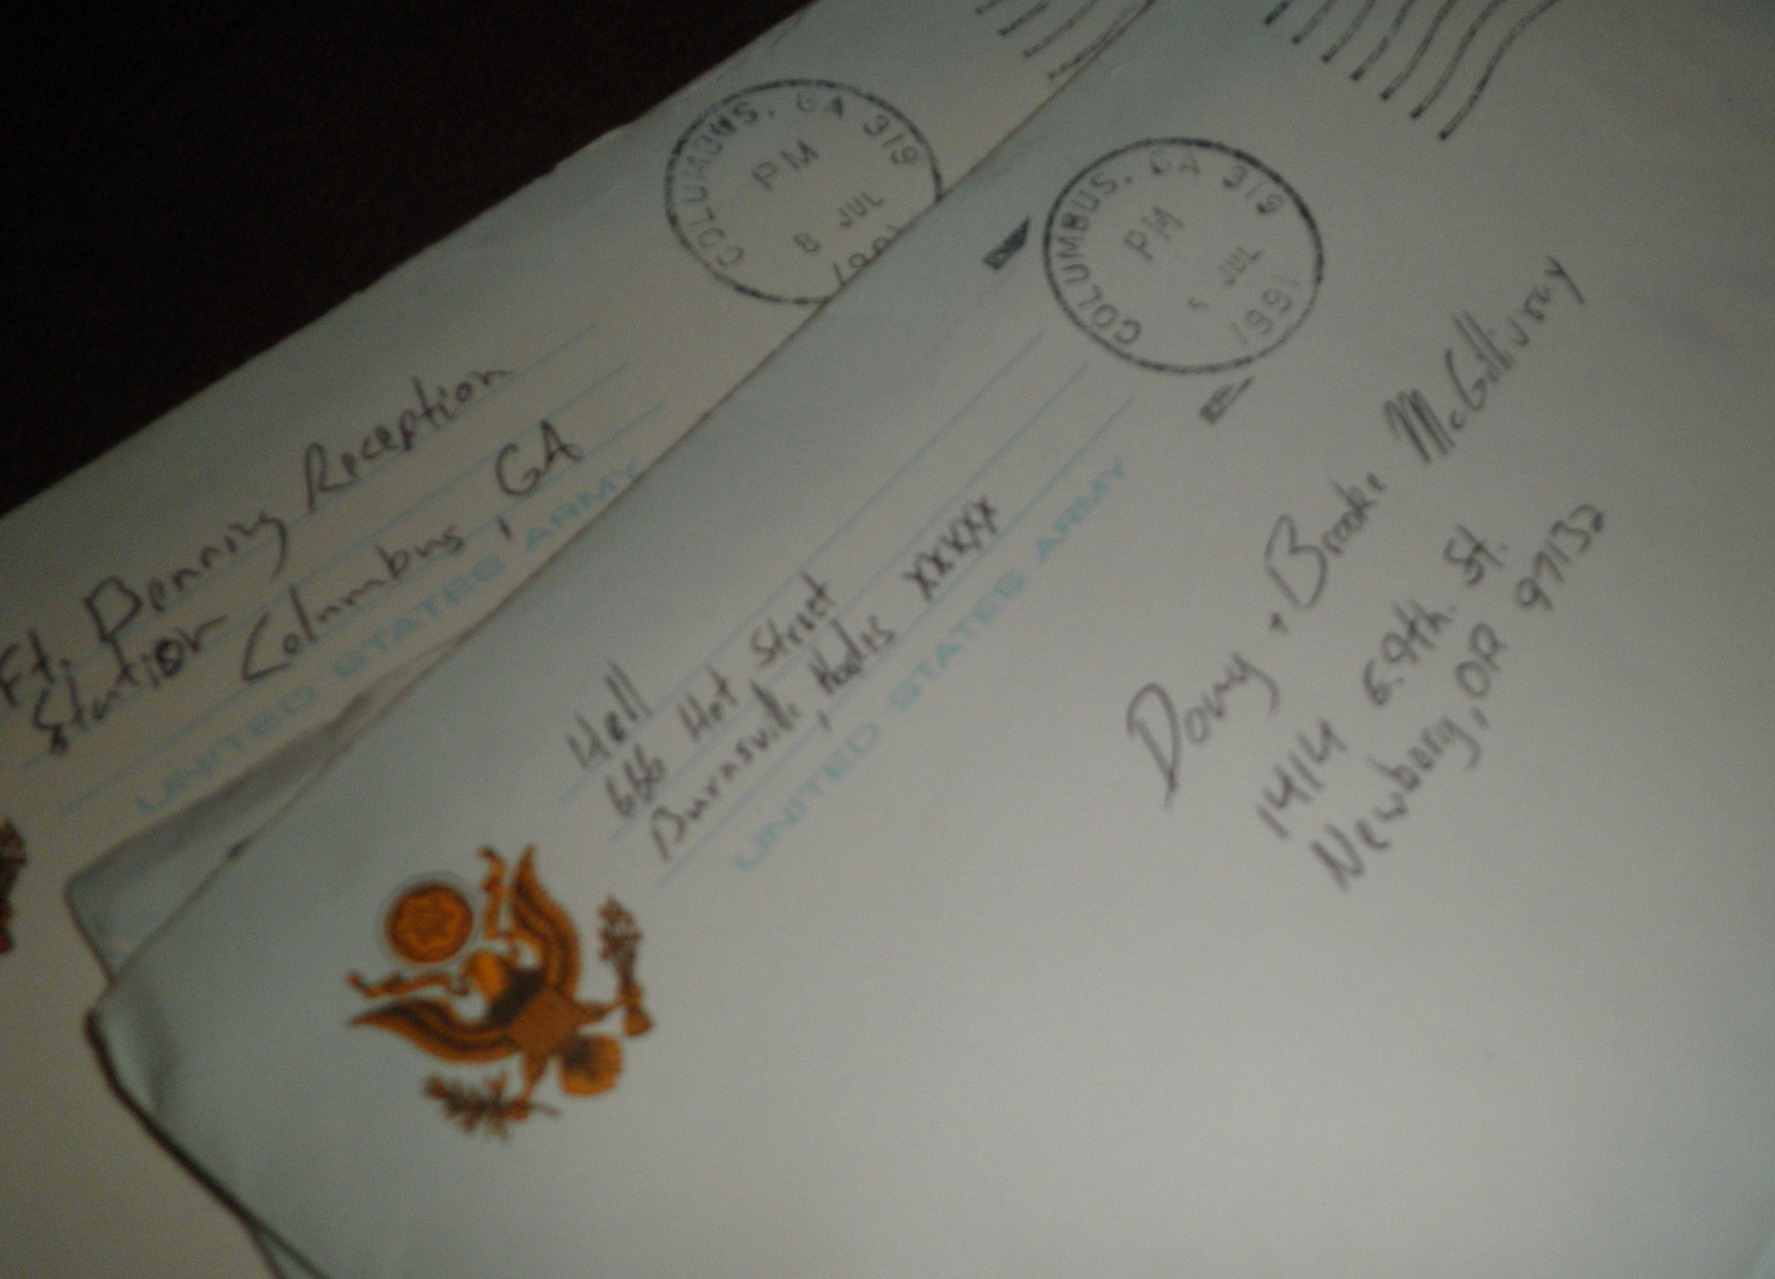 COLUMBUS, GA 319
PM
8 JUL
1991
Ft. Benning Reception
Station
Columbus, GA
UNITED STATES ARMY
COLUMBUS, GA 319
PM
5 JUL
1991
Hell
666 Hot Street
Burnsville, Hades XXXXX
UNITED STATES ARMY
Doug + Brooke McGillivray
1414 E. 9th. St.
Newburg, OR 97132